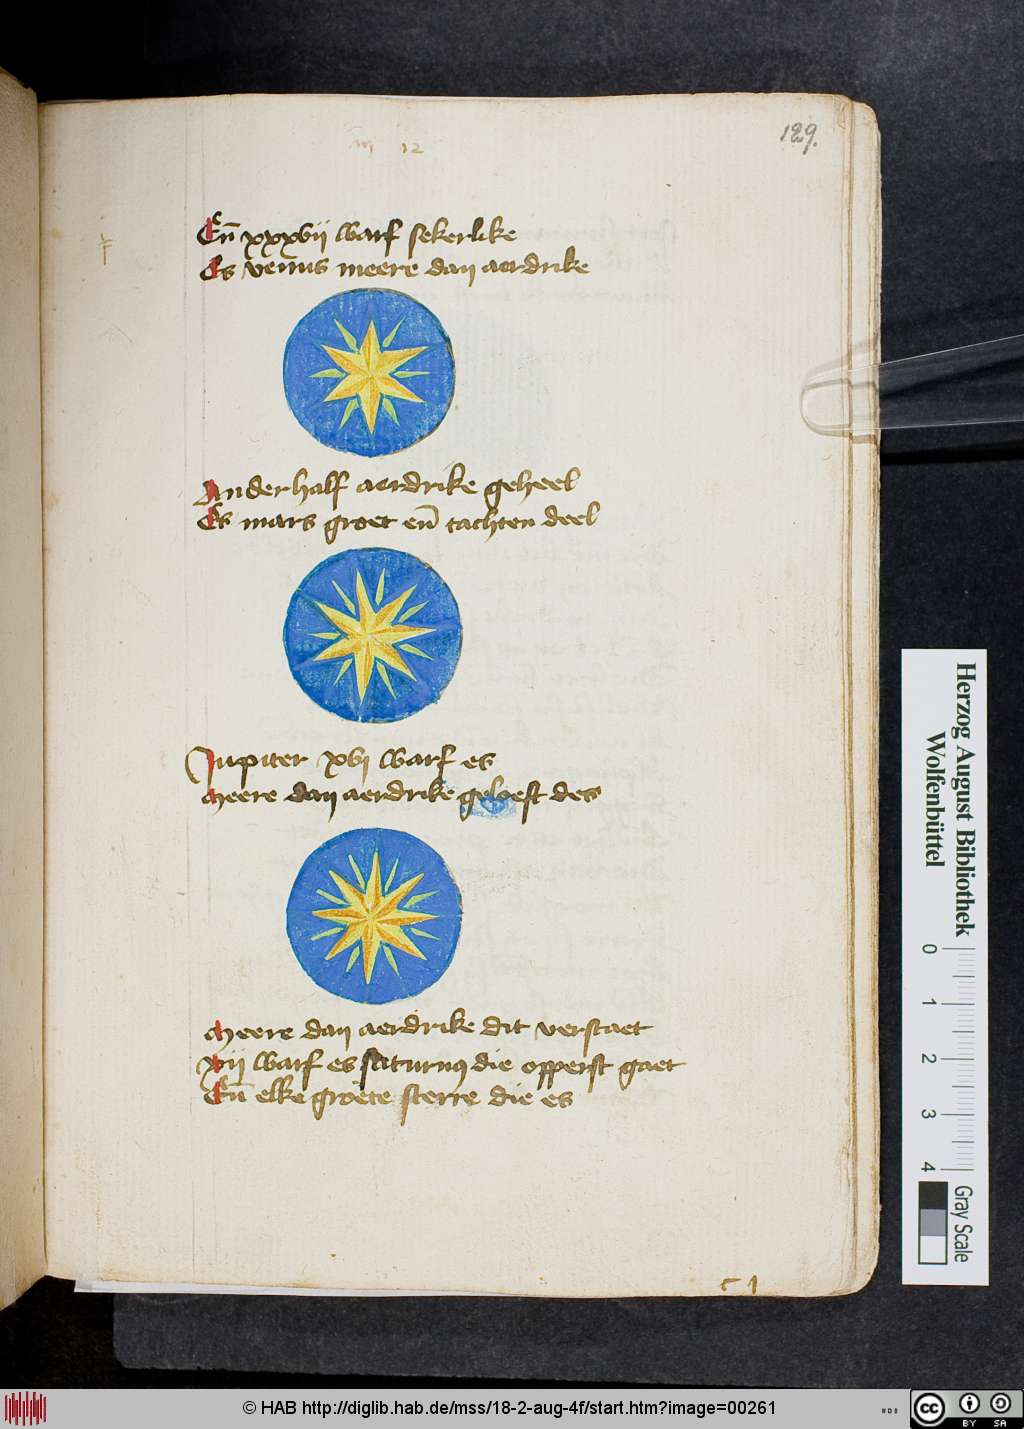 129.
m 12
En̄ xxxvij warf sekerlike
Es venus meere dan aerdrike
Anderhalf aerdrike geheel
Es mars groet en̄ tachten deel
Jupiter xvj warf es
Meere dan aerdrike geloeft des
Meere dan aerdrike dit verstaet
xij warf es saturnꝰ die opperst gaet
En̄ elke groete sterre die es
Herzog August Bibliothek
Wolfenbüttel
0 1 2 3 4
Gray Scale
© HAB http://diglib.hab.de/mss/18-2-aug-4f/start.htm?image=00261
cc BY SA